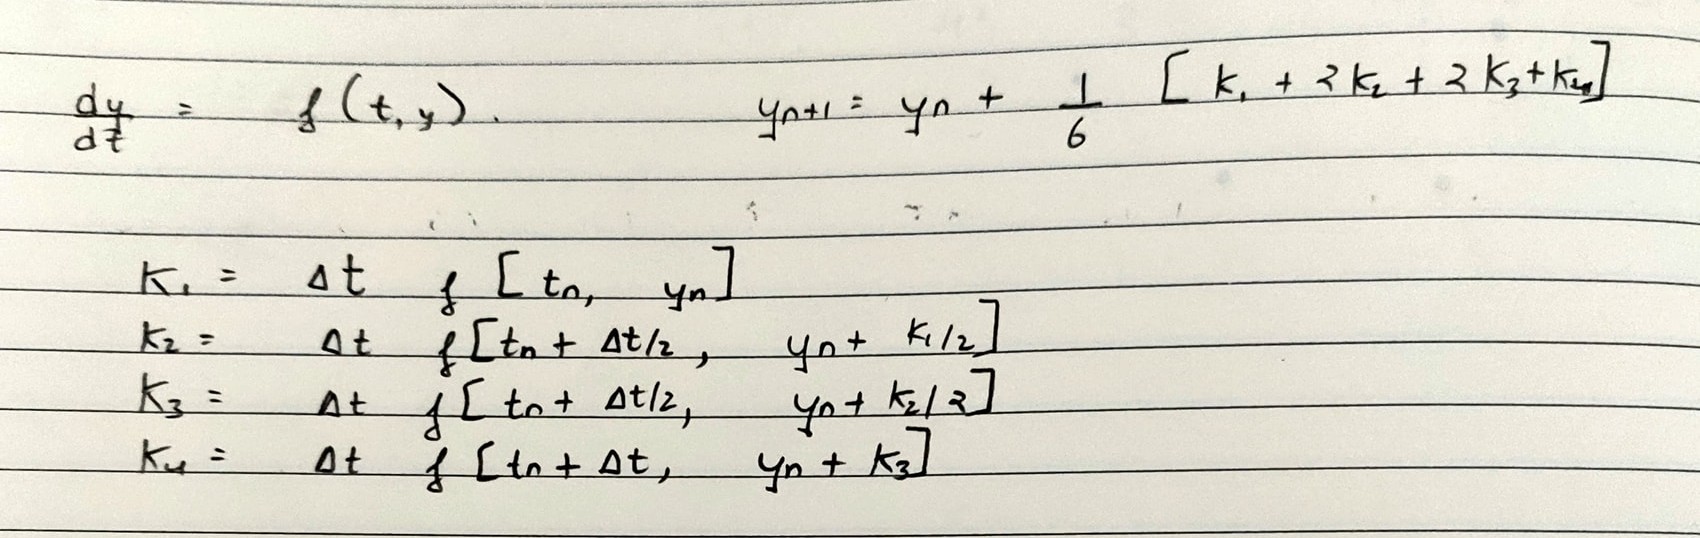 dy/dt = f(t,y). yn+1 = yn + 1/6 [k1 + 2k2 + 2k3+k4]
K1 = Δt f[tn, yn]
K2 = Δt f[tn + Δt/2, yn + k1/2]
K3 = Δt f[tn + Δt/2, yn + k2/2]
K4 = Δt f[tn + Δt, yn + k3]